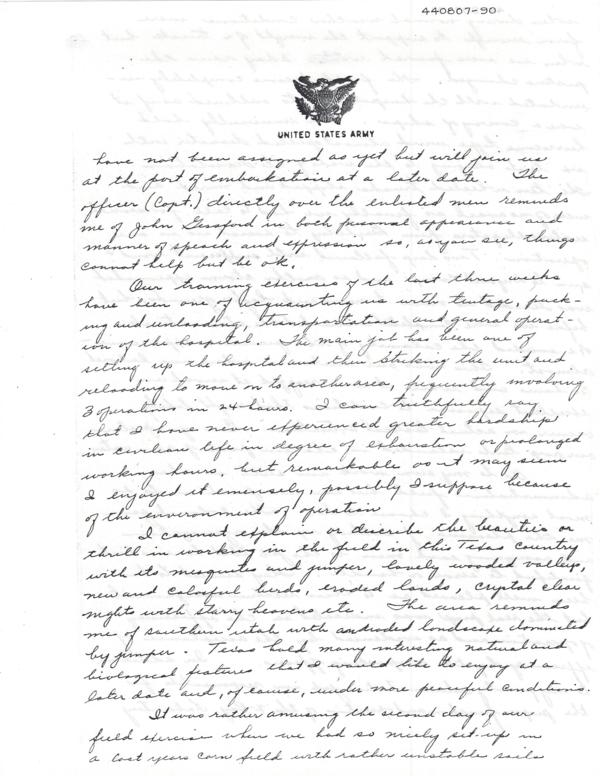 440807-90
UNITED STATES ARMY
have not been assigned as yet but will join us
at the port of embarkation at a later date. The
officer (Capt.) directly over the enlisted men reminds
me of John Gessford in both personal appearance and
manner of speach and expression so, as you see, things
cannot help but be ok.
Our training exercises of the last three weeks
have been one of acquainting us with tentage, pack-
ing and unloading, transportation and general operat-
ion of the hospital. The main job has been one of
setting up the hospital and then striking the unit and
reloading to move on to another area, frequently involving
3 operations in 24 hours. I can truthfully say
that I have never experienced greater hardship
in civilian life in degree of exhaustion or prolonged
working hours, but remarkable as it may seem
I enjoyed it emensely, possibly I suppose because
of the environment of operation
I cannot explain or describe the beauties or
thrill in working in the field in this Texas country
with its mesquites and juniper, lovely wooded valleys,
new and colorful birds, eroded lands, crystal clear
nights with starry heavens etc. The area reminds
me of southern utah with eroded landscape dominated
by juniper. Texas hold many interesting natural and
biological features that I would like to enjoy at a
later date and, of course, under more peaceful conditions.
It was rather amusing the second day of our
field exercise when we had so nicely set-up in
a last years corn field with rather unstable soils